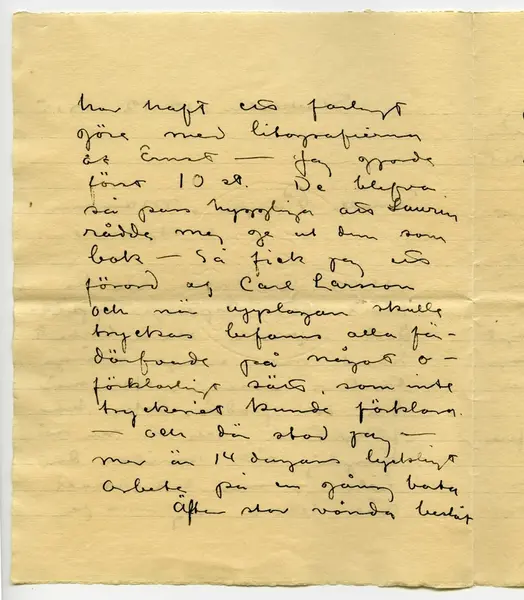 har haft ett farligt
göra med litografierna
åt Ernst — Jag gjorde
först 10 st. De blefva
så pass hyggliga att Laurin
rådde mig ge ut dem som
bok — Så fick jag ett
förord af Carl Larsson
och när upplagan skulle
tryckas befanns alla för-
därfvade på något o-
förklarligt sätt, som inte
tryckeriet kunde förklara.
— och där stod jag —
mer än 14 dagars lyckligt
arbete på en gång borta
Äfter stor vånda beslöt